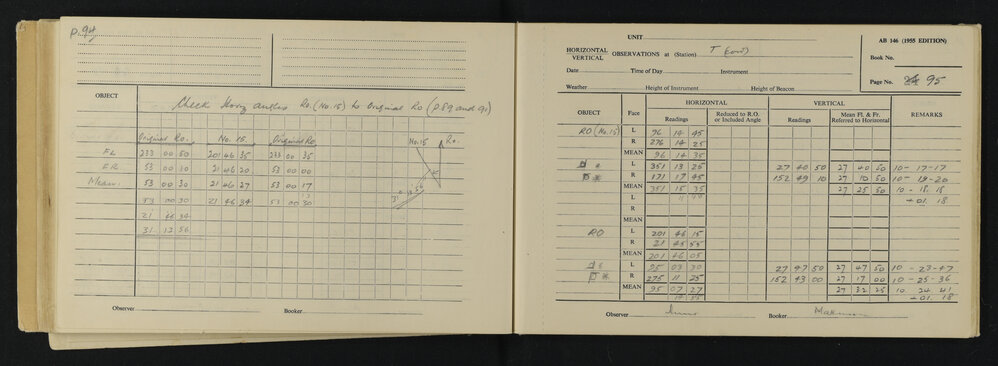 P.94
OBJECT
Check Horiz angles Ro. (No.15) to Original Ro (P.89 and 91)
Original Ro. No. 15. Original Ro.
FL 233 00 50 201 46 35 233 00 35
FR 53 00 10 21 46 20 53 00 00
Mean. 53 00 30 21 46 27 53 00 17
53 00 30 21 46 34 53 00 30
21 46 34
31 13 56
No.15 Ro.
31° 13 56
Observer Booker
UNIT
AB 146 (1955 EDITION)
HORIZONTAL
VERTICAL
OBSERVATIONS at (Station) T
Book No.
Date Time of Day Instrument
Page No. 95
Weather Height of Instrument Height of Beacon
OBJECT Face HORIZONTAL VERTICAL REMARKS
Readings Reduced to R.O. or Included Angle Readings Mean Fl. & Fr. Referred to Horizontal
RO (No.15) L 96 14 45
R 276 14 25
MEAN 96 14 35
L 351 13 25 27 40 50 27 40 50 10-17-17
R 171 17 45 152 49 10 27 10 50 10-19-20
MEAN 351 15 35 27 25 50 10-18.18
L +01.18
R
MEAN
RO L 201 46 15
R 21 45 55
MEAN 201 46 05
L 95 03 30 27 47 50 27 47 50 10-23-47
R 275 11 25 152 43 00 27 17 00 10-25-36
MEAN 95 07 27 27 32 25 10 24 41
+01.18
Observer Booker